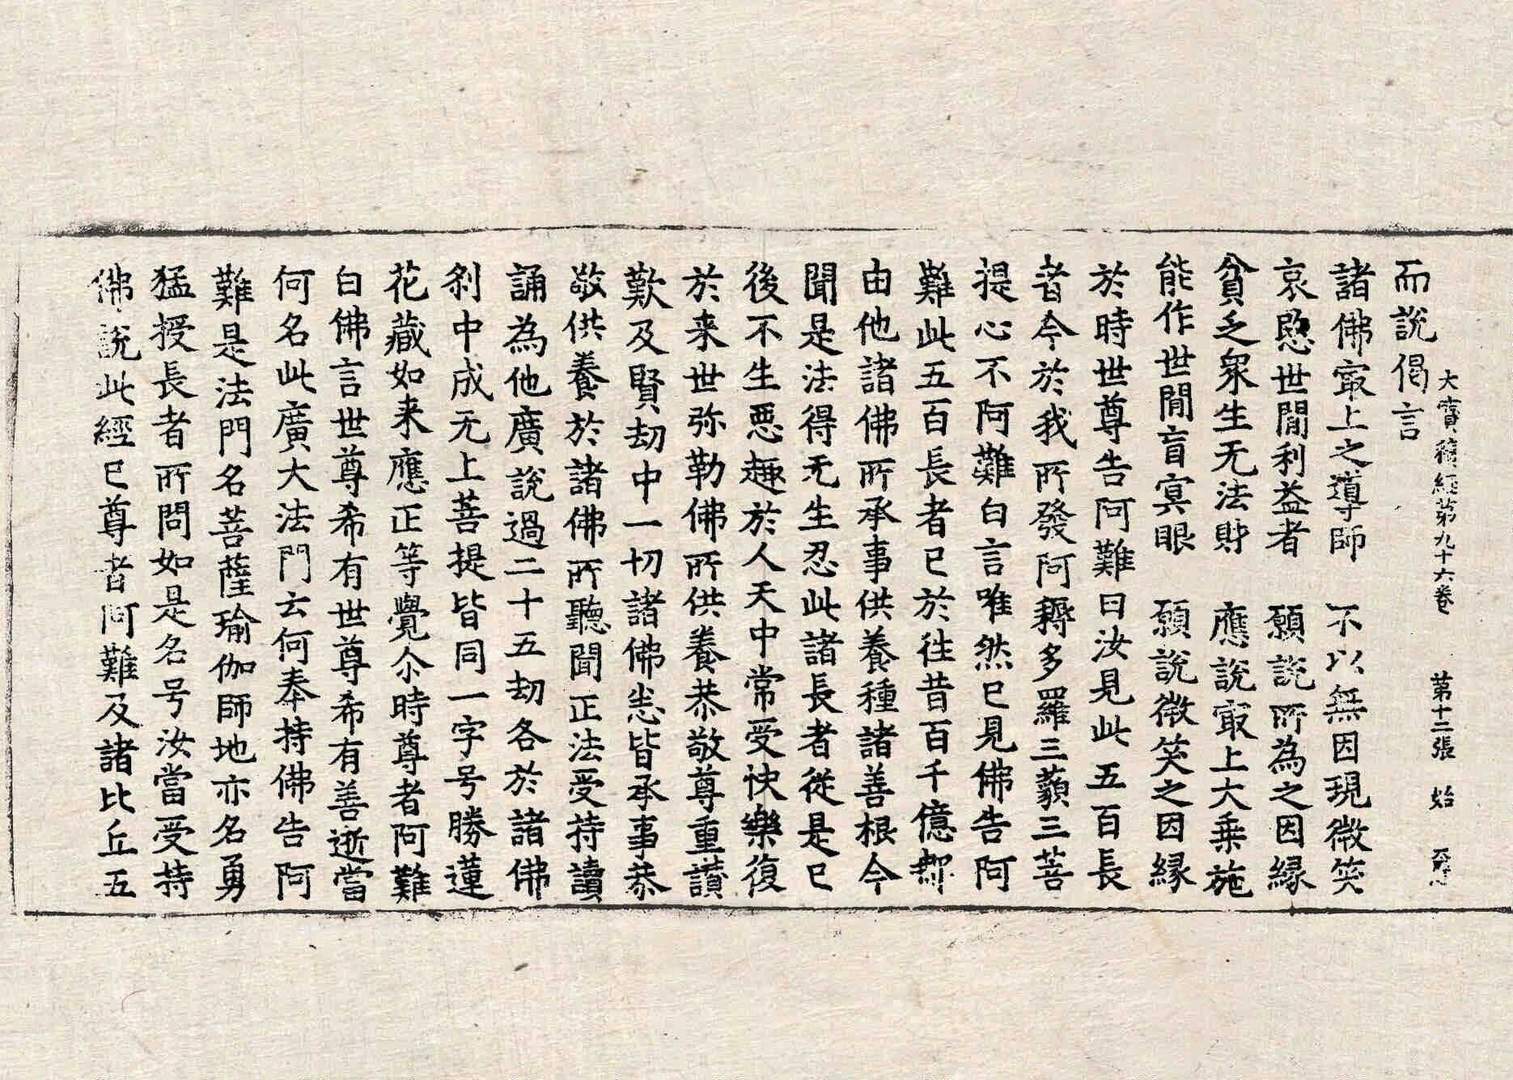 大寶積經第九十六卷 第十二張 始
而說偈言
諸佛㝡上之導師 不以無因現微笑
哀愍世閒利益者 願說所為之因緣
貧乏衆生无法財 應說㝡上大乗施
能作世閒盲㝠眼 願說微笑之因緣
於時世尊告阿難曰汝見此五百長
者今於我所發阿耨多羅三藐三菩
提心不阿難白言唯然已見佛告阿
難此五百長者已於往昔百千億那
由他諸佛所承事供養種諸善根今
聞是法得无生忍此諸長者從是已
後不生惡趣於人天中常受快樂復
於来世弥勒佛所供養恭敬尊重讃
歎及賢劫中一切諸佛悉皆承事恭
敬供養於諸佛所聽聞正法受持讀
誦為他廣說過二十五劫各於諸佛
刹中成无上菩提皆同一字号勝蓮
花藏如来應正等覺尒時尊者阿難
白佛言世尊希有世尊希有善逝當
何名此廣大法門云何奉持佛告阿
難是法門名菩薩瑜伽師地亦名勇
猛授長者所問如是名号汝當受持
佛說此經已尊者阿難及諸比丘五